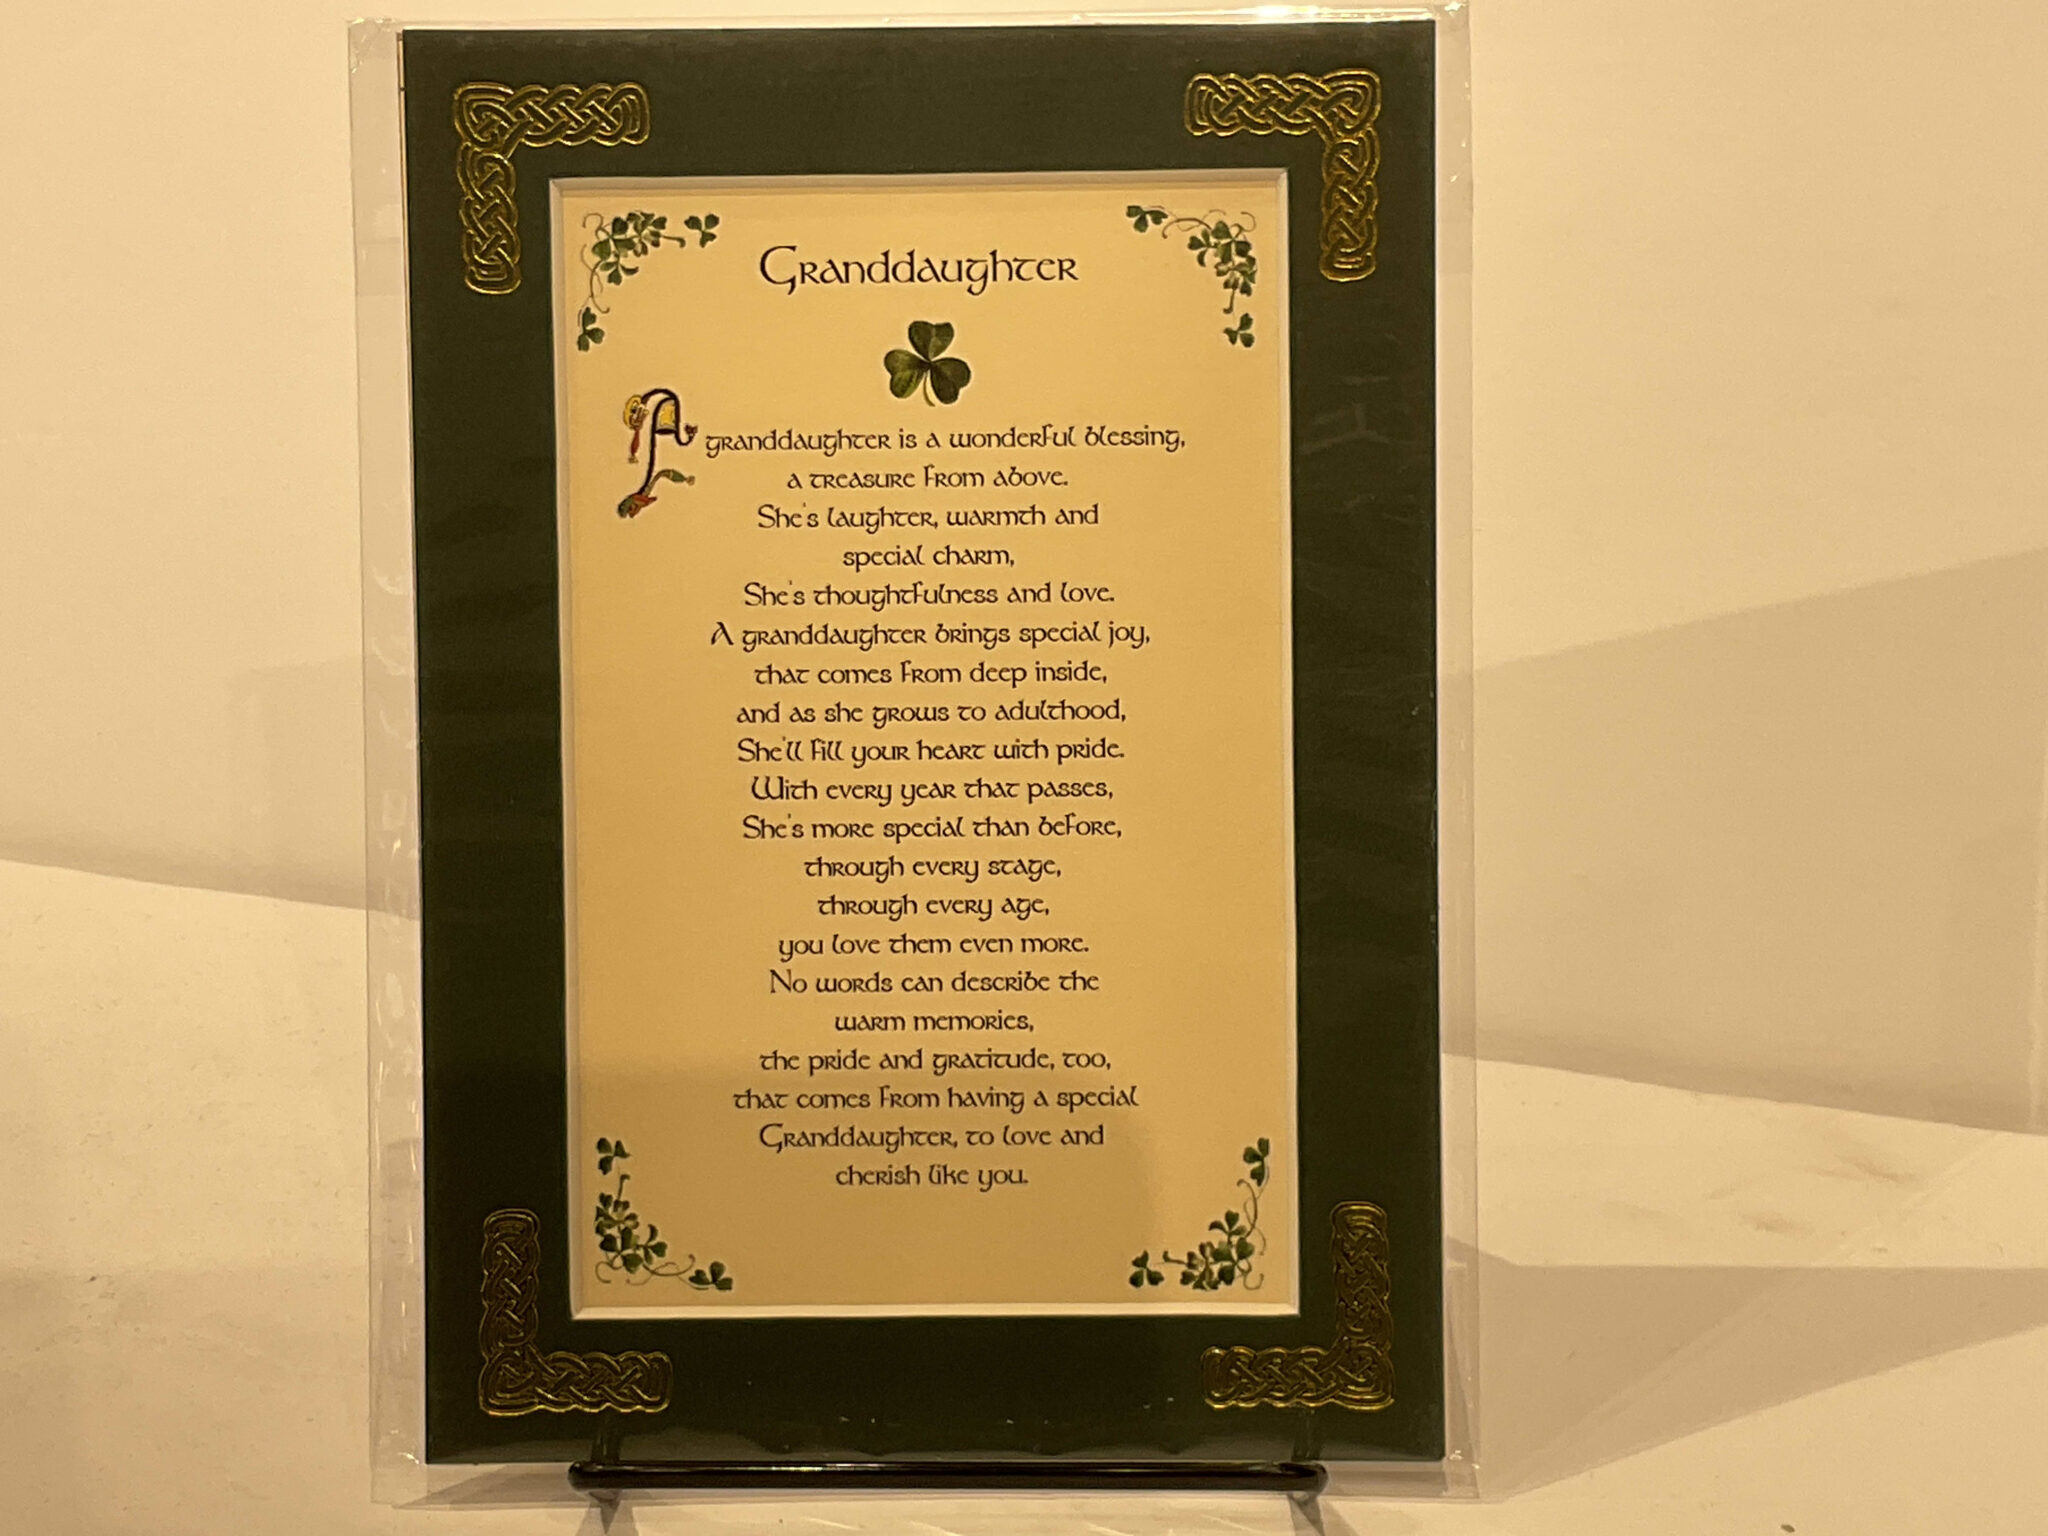 Granddaughter
A granddaughter is a wonderful blessing,
a treasure from above.
She's laughter, warmth and
special charm,
She's thoughtfulness and love.
A granddaughter brings special joy,
that comes from deep inside,
and as she grows to adulthood,
She'll fill your heart with pride.
With every year that passes,
She's more special than before,
through every stage,
through every age,
you love them even more.
No words can describe the
warm memories,
the pride and gratitude, too,
that comes from having a special
Granddaughter, to love and
cherish like you.